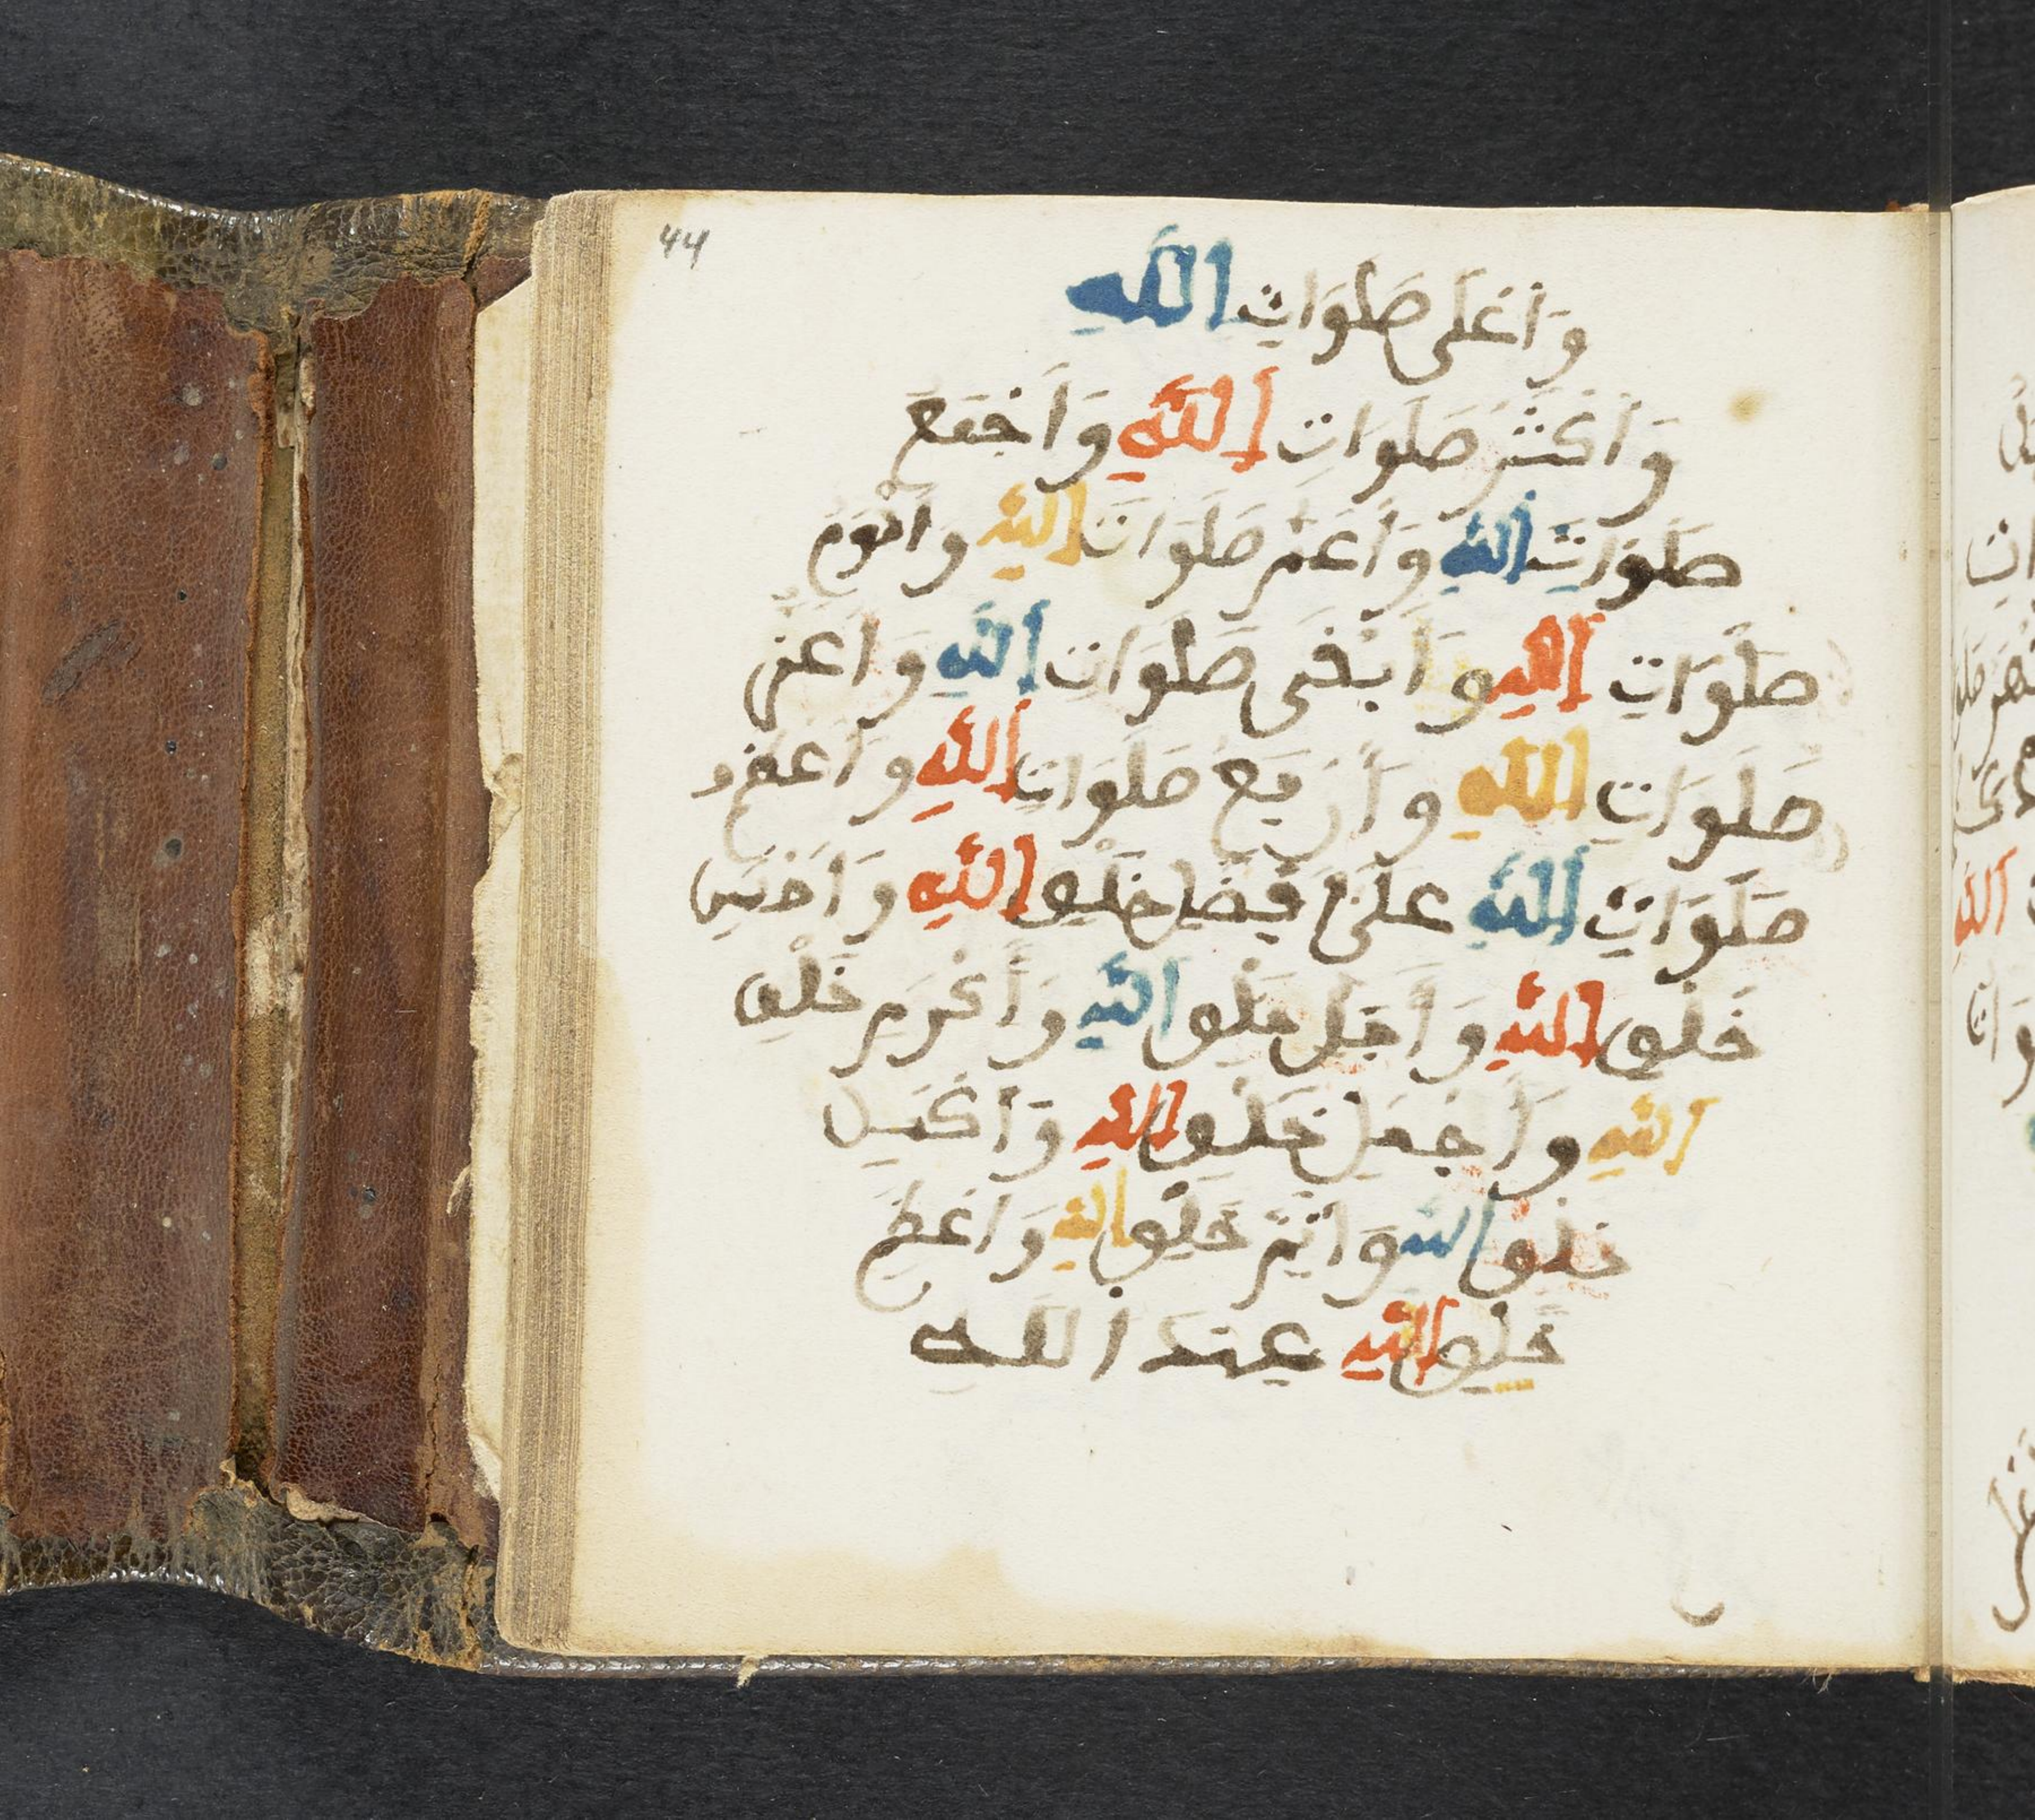 44
وَأَعْلَى صَلَوَاتِ اللهِ
وَأَكْثَرُ صَلَوَاتِ اللهِ وَأَجْمَعُ
صَلَوَاتِ اللهِ وَأَعَمُّ صَلَوَاتِ اللهِ وَأَدْوَمُ
صَلَوَاتِ اللهِ وَأَبْقَى صَلَوَاتِ اللهِ وَأَعَزُّ
صَلَوَاتِ اللهِ وَأَرْفَعُ صَلَوَاتِ اللهِ وَأَعْظَمُ
صَلَوَاتِ اللهِ عَلَى أَفْضَلِ خَلْقِ اللهِ وَأَحْسَنِ
خَلْقِ اللهِ وَأَجَلِّ خَلْقِ اللهِ وَأَكْرَمِ خَلْقِ
اللهِ وَأَجْمَلِ خَلْقِ اللهِ وَأَكْمَلِ
خَلْقِ اللهِ وَأَتَمِّ خَلْقِ اللهِ وَأَعْظَمِ
خَلْقِ اللهِ عِنْدَ اللهِ